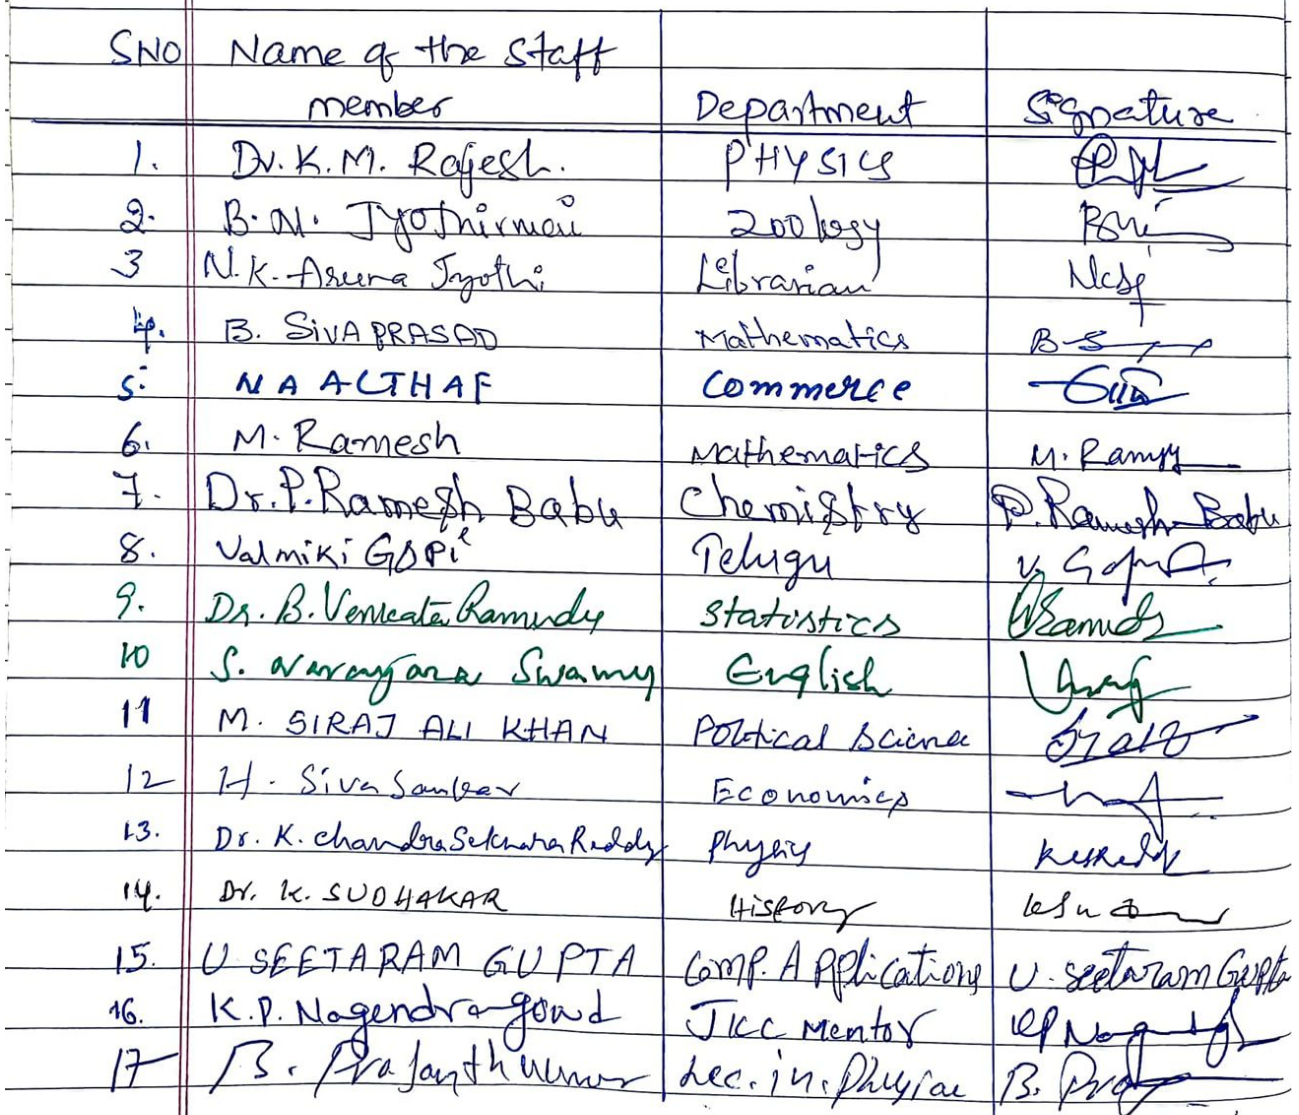 SNO Name of the Staff
member Department Signature
1. Dr. K.M. Rajesh. PHYSICS
2. B.N. Jyothirmai Zoology
3 N.K. Aruna Jyothi Librarian
4. B. SIVA PRASAD Mathematics B-S
5. N A ALTHAF Commerce
6. M. Ramesh Mathematics M. Ramesh
7. Dr. P. Ramesh Babu Chemistry P. Ramesh Babu
8. Valmiki Gopi Telugu V. Gopi
9. Dr. B. Venkata Ramudu Statistics
10 S. Narayana Swamy English
11 M. SIRAJ ALI KHAN Political Science
12 H. Siva Sankar Economics
13. Dr. K. Chandra Sekhara Reddy Physics
14. Dr. K. SUDHAKAR History
15. U SEETARAM GUPTA Comp. Applications U. Seetaram Gupta
16. K.P. Nagendra gowd JKC Mentor
17 B. Prasanth Kumar Lec. in. Physics